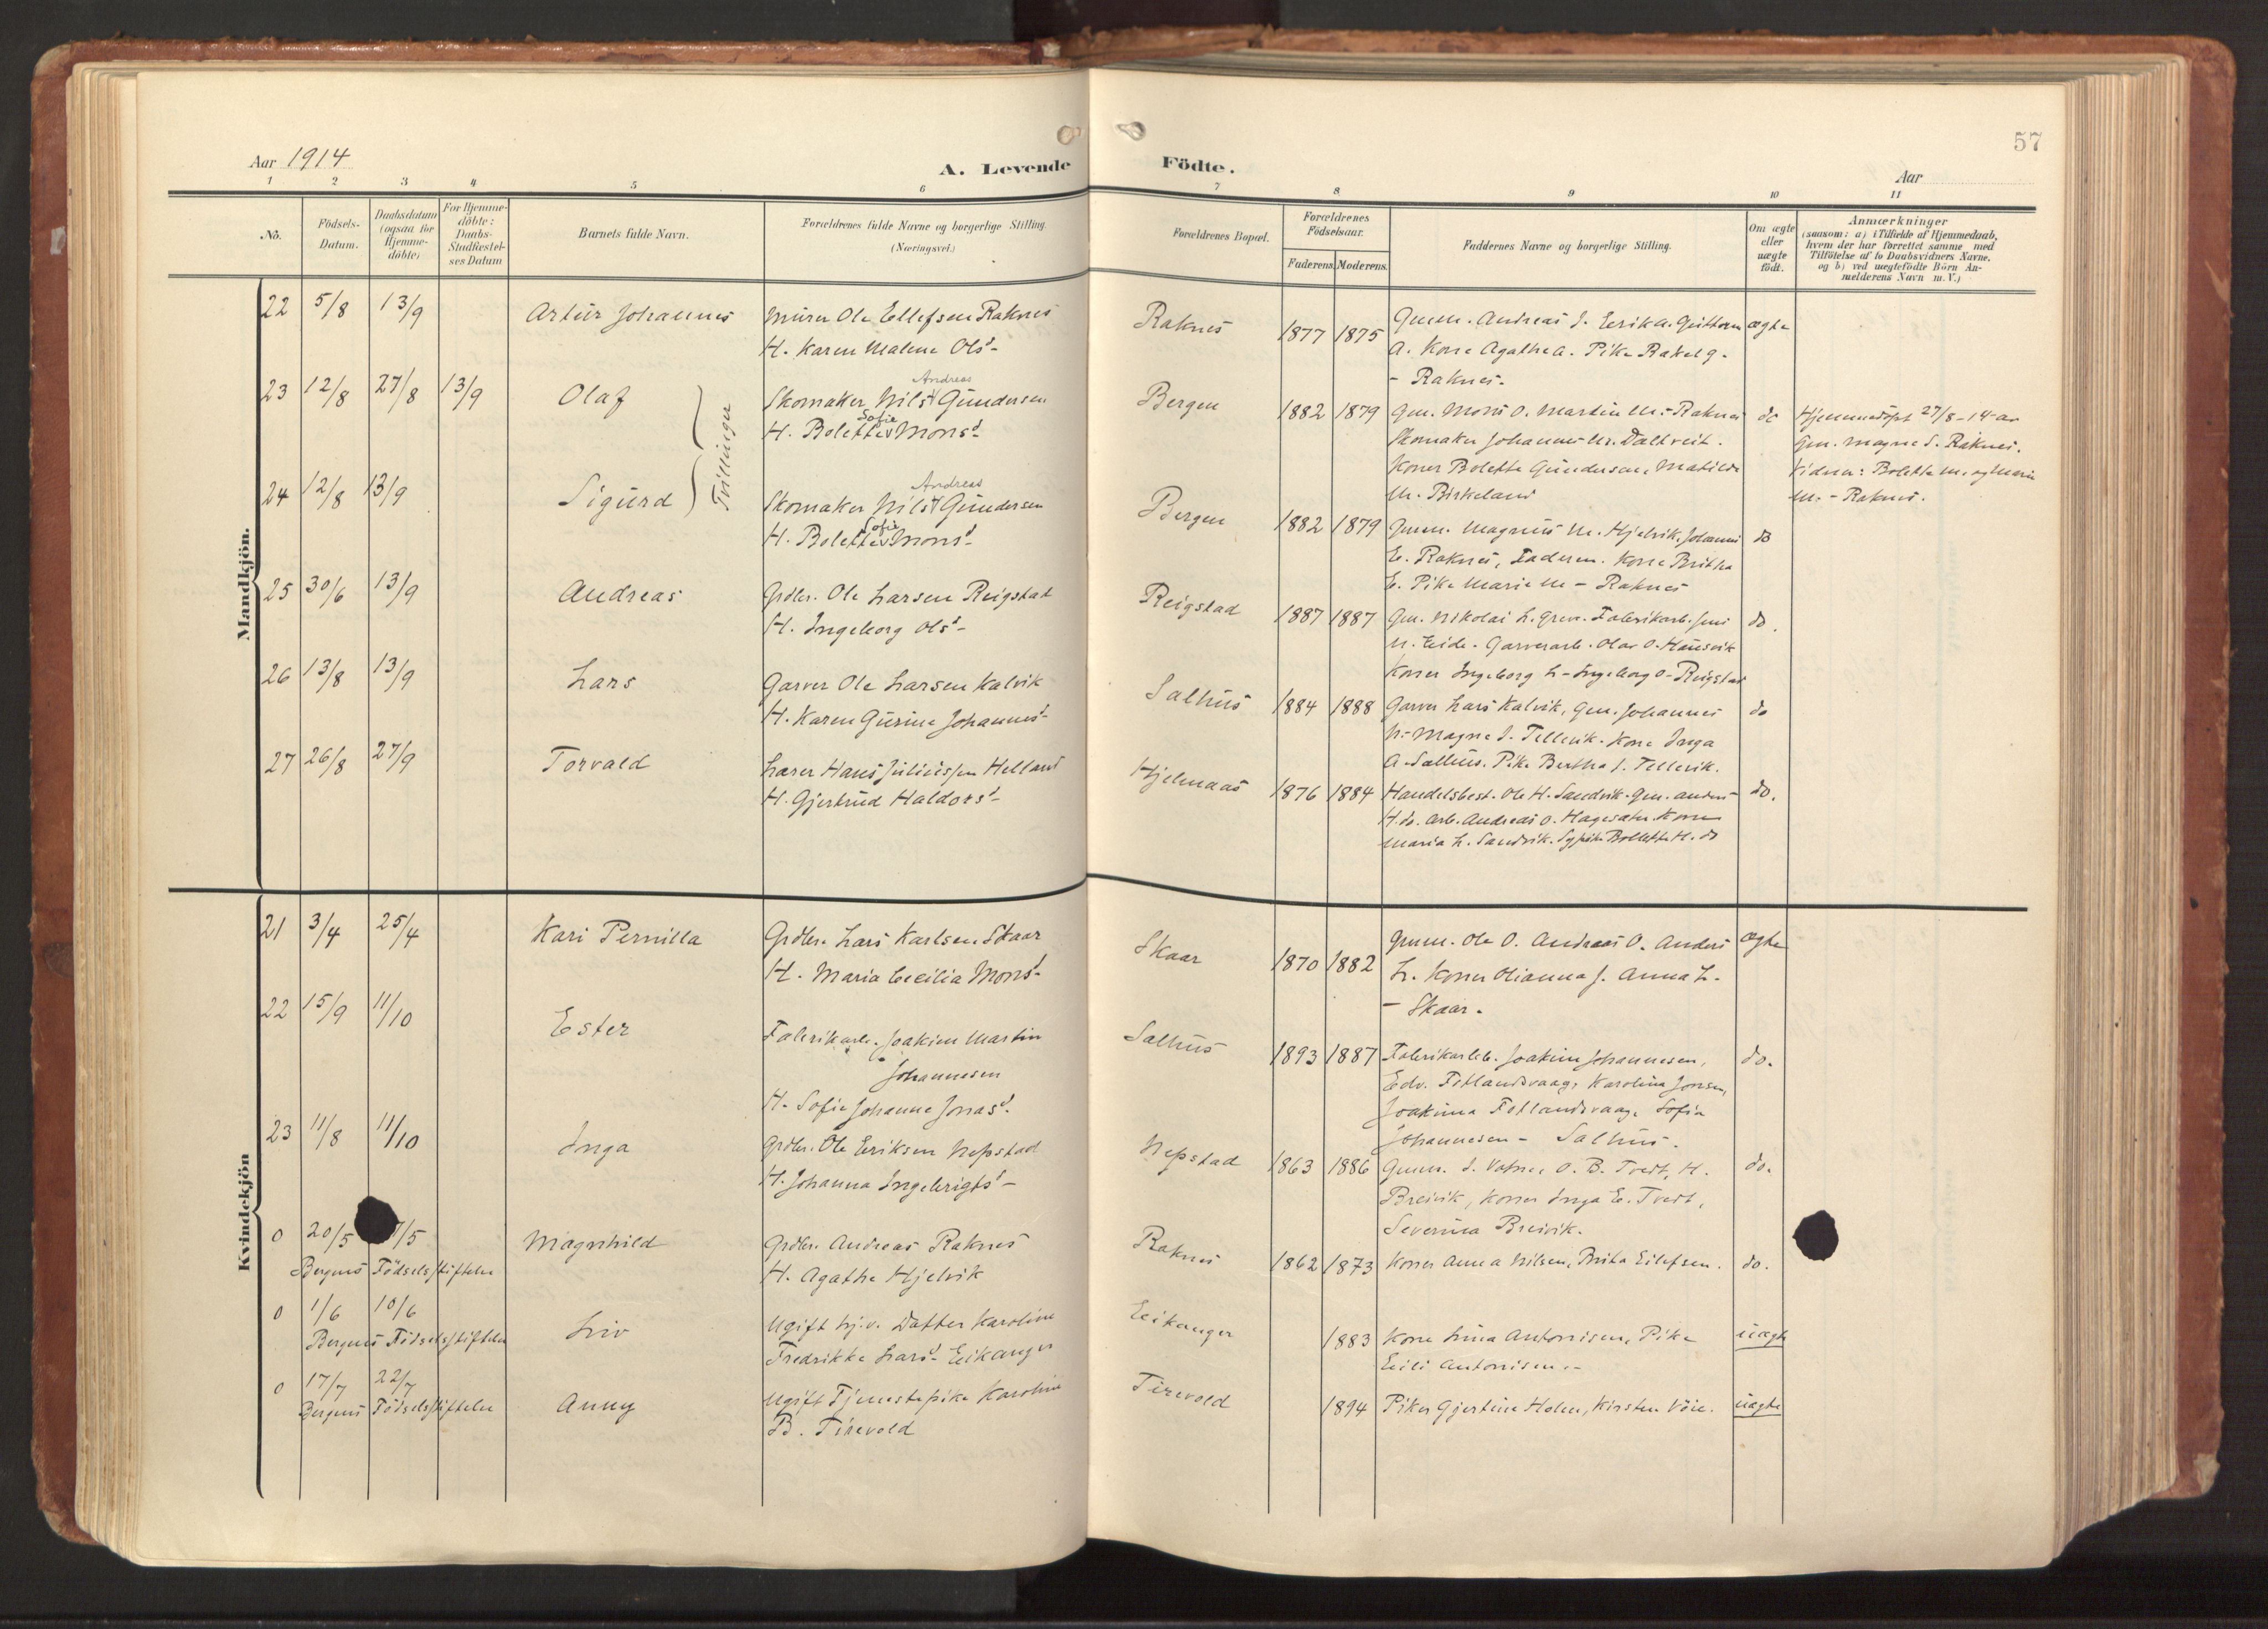 57
Aar 1914
A. Levende Födte.
Aar
1 2 3 4 5 6 7 8 9 10 11
No.
Födsels-
Datum.
Daabsdatum
(ogsaa for
Hjemme-
döbte)
For Hjemme-
döbte:
Daabs-
Stadfæstel-
ses Datum
Barnets fulde Navn.
Forældrenes fulde Navne og borgerlige Stilling
(Næringsvei.)
Forældrenes Bopæl.
Forældrenes
Födselsaar.
Faderens. Moderens.
Faddernes Navne og borgerlige Stilling.
Om ægte
eller
uægte
födt.
Anmærkninger
(saasom: a) i Tilfælde af Hjemmedaab,
hvem der har forrettet samme med
Tilföielse af to Daabsvidners Navne,
og b) ved uægtefödte Börn An-
melderens Navn m. V.)
Mandkjön.
22 5/8 13/9 Artur Johannes Murer Ole Ellefsen Raknes Raknes 1877 1875 Gmm. Andreas J. Erik A. Guttorm ægte
H. Karen Malene Olsd-
A. Kone Agathe A. Pike Rakel G.
- Raknes.
23 12/8 27/8 13/9 Olaf Skomaker Nils Andreas Gundersen Bergen 1882 1879 Gm. Mons O. Martin M. - Raknes do
H. Bolette Sofie Monsd-
Skomaker Johannes M. Daltveit.
Koner Bolette Gundersen, Matilde
M. Birkeland
Hjemmedöpt 27/8-14 av
Gm. Magne S. Raknes.
Vidner: Bolette M. og Marie
M. - Raknes.
Tvillinger
24 12/8 13/9 Sigurd Skomaker Nils Andreas Gundersen Bergen 1882 1879 Gmm. Magnus M. Hjelvik, Johannes do
H. Bolette Sofie Monsd-
E. Raknes, Faderen. Kone Britha
E. Pike Marie M - Raknes
25 30/6 13/9 Andreas Grdbr. Ole Larsen Reigstad Reigstad 1887 1887 Gm. Nikolai L. Greve. Fabrikarb. Jens do.
H. Ingeborg Olsd-
N. Eide. Garverarb. Olav O. Hausvik
Koner Ingeborg L- Ingeborg O- Reigstad
26 13/8 13/9 Lars Garver Ole Larsen Kalvik Salhus 1884 1888 Garver Lars Kalvik, Gm. Johannes do
H. Karen Gurine Johannesd-
N- Magne J. Tellevik. Kone Inga
A. Salhus. Pike Bertha J. Tellevik.
27 26/8 27/9 Torvald Lærer Hans Juliussen Helland Hjelmaas 1876 1884 Handelsbest. Ole H. Sandvik. Gm. Anders do.
H. Gjertrud Haldorsd-
H. do. Arb. Andreas O. Hagesæter. Koner
Maria L. Sandvik. Sypike Bollette H. do
Kvindekjön
21 3/4 25/4 Kari Pernilla Grdbr. Lars Karlsen Skaar Skaar 1870 1882 Gmm. Ole O. Andreas O. Anders ægte
H. Maria Cecilia Monsd-
L. Koner Olianna J. Anna L.
- Skaar.
22 15/9 11/10 Ester Fabrikarb. Joakim Martin Salhus 1893 1887 Fabrikarbb. Joakim Johannesen, do.
Johannesen
H. Sofie Johanne Jonasd-
Edv. Fetlandsvaag, Karolina Jonsen,
Joakima Fetlandsvaag, Sofia
Johannesen - Salhus.
23 11/8 11/10 Inga Grdbr. Ole Eriksen Nepstad Nepstad 1863 1886 Gmm. J. Votne, O. B. Tveit, H. do.
H. Johanna Ingebrigtsd-
Breivik, Koner Inga E. Tveit,
Severina Breivik.
0 20/5 7/5 Magnhild Grdbr. Andreas Raknes Raknes 1862 1873 Koner Anna Nilsen, Brita Eilefsen. do.
Bergens Födselsstiftelse H. Agathe Hjelvik
0 1/6 10/6 Liv Ugift hj.v. Datter Karoline Eikanger 1883 Kone Lina Antonisen, Pike uægte
Bergens Födselsstiftelse Fredrikke Larsd- Eikanger
Eili Antonisen.-
0 17/7 22/7 Anny Ugift Tjenestepike Karoline Tirevold 1894 Piker Gjertine Holen, Kirsten Vöie. uægte
Bergens Födselsstiftelse B. Tirevold